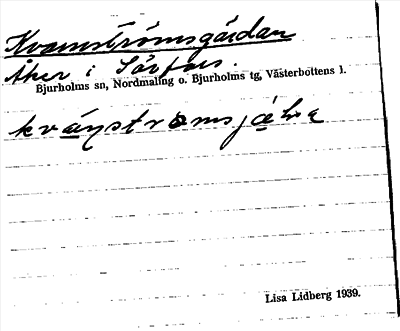 Kvarnströmsgärdan
Åker i Sörfors.
Bjurholms sn, Nordmaling o. Bjurholms tg, Västerbottens l.
Lisa Lidberg 1939.